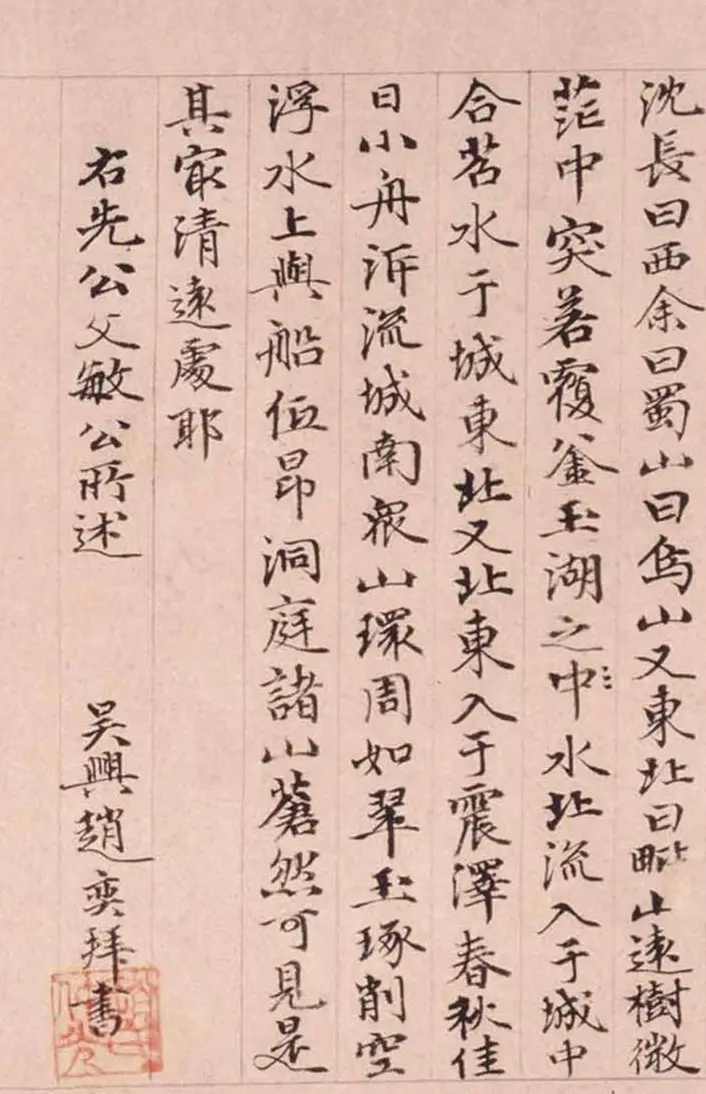 沈長曰西余曰蜀山曰烏山又東北曰毗山遠樹微
茫中突若覆釜玉湖之中水北流入于城中
合苕水于城東北又北東入于震澤春秋佳
日小舟泝流城南衆山環周如翠玉琢削空
浮水上與船低昂洞庭諸山蒼然可見是
其最清遠處耶
右先公文敏公所述 吳興趙奕拜書